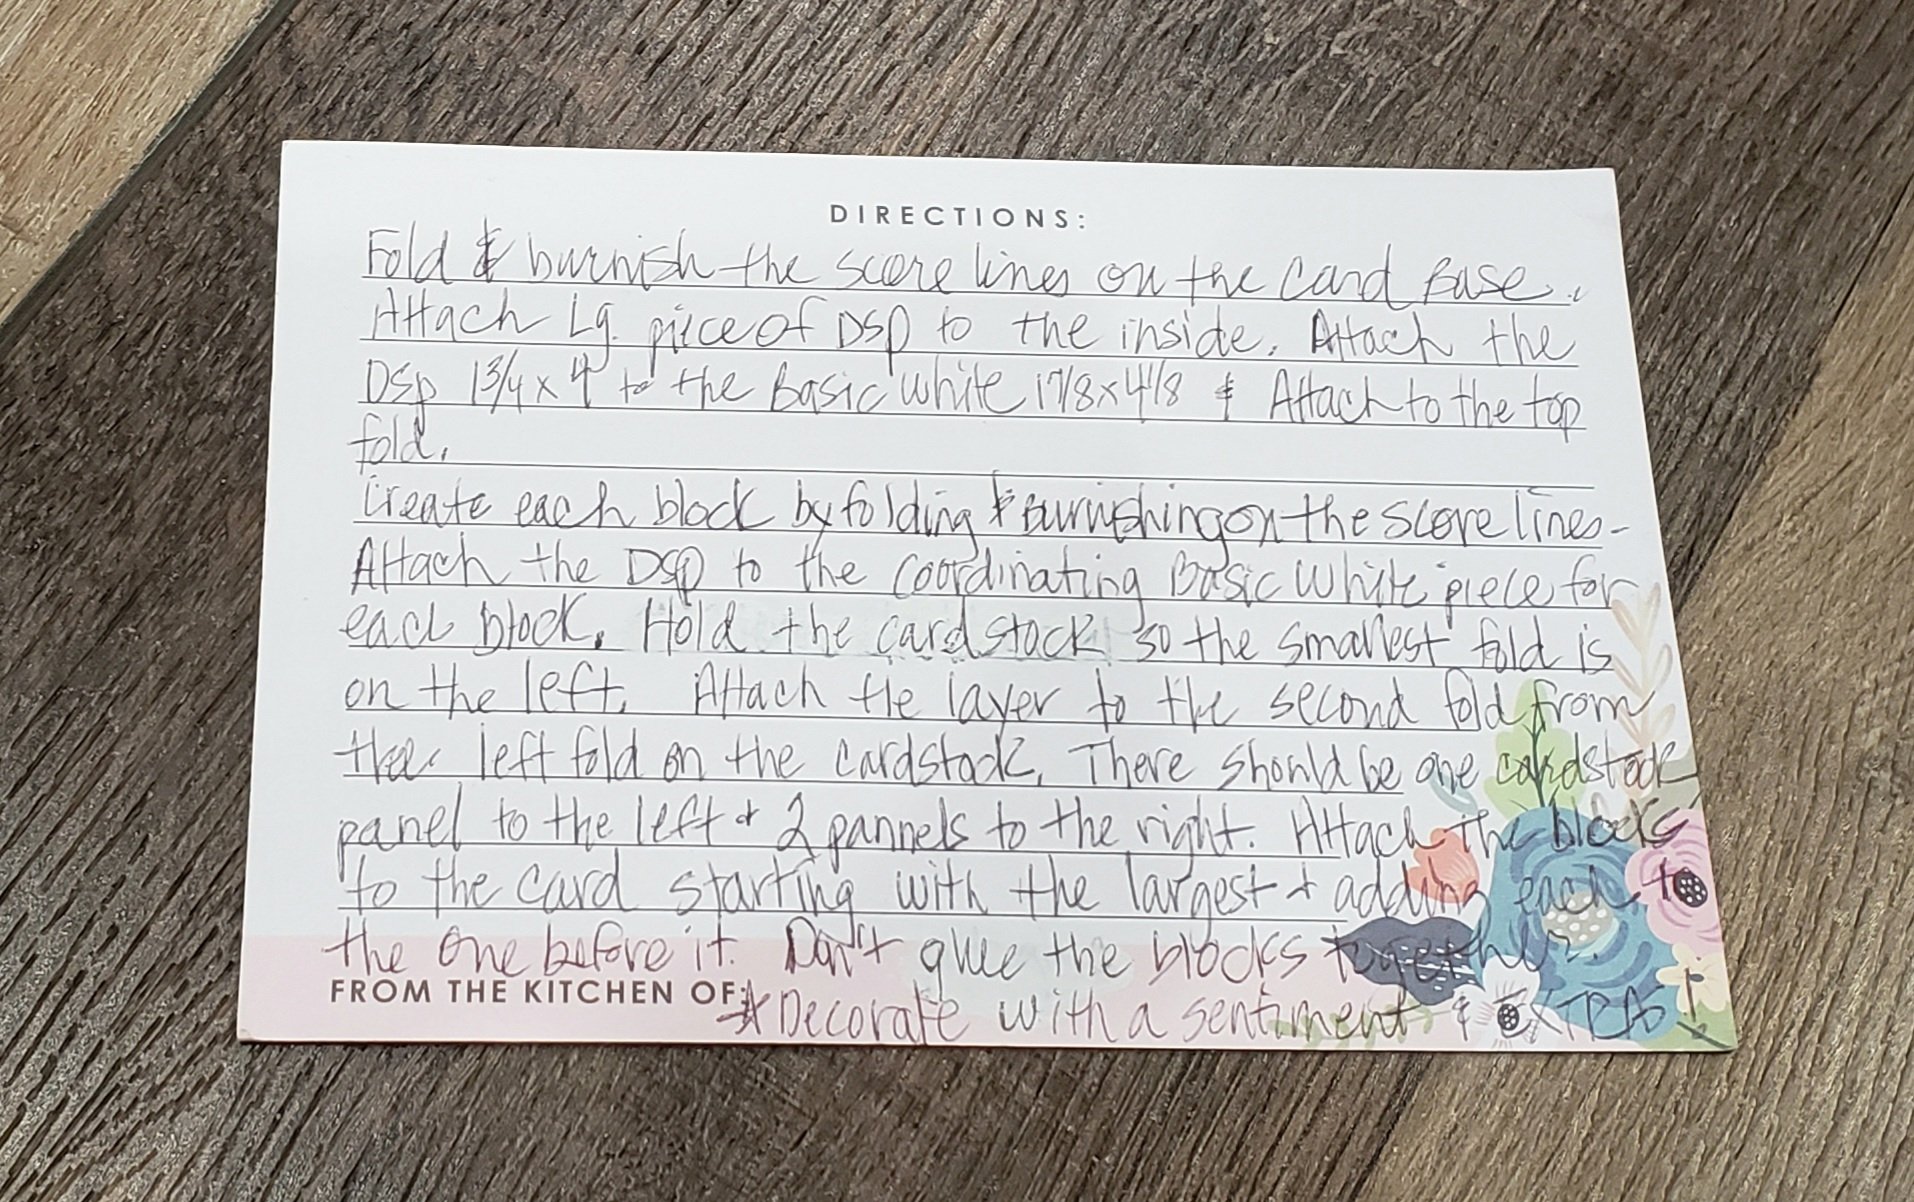 DIRECTIONS:
Fold & burnish the score lines on the card Base.
Attach Lg. piece of DSP to the inside. Attach the
DSP 1 3/4 x 4 to the Basic White 1 7/8 x 4 1/8 & Attach to the top
fold.
Create each block by folding & Burnishing on the score lines-
Attach the DSP to the coordinating Basic White piece for
each block. Hold the cardstock so the smallest fold is
on the left. Attach the layer to the second fold from
the left fold on the cardstock. There should be one cardstock
panel to the left & 2 pannels to the right. Attach the blocks
to the card starting with the largest + adding each to
the one before it. Don't glue the blocks together.
FROM THE KITCHEN OF:
* Decorate with a sentiment & EXTRAS!